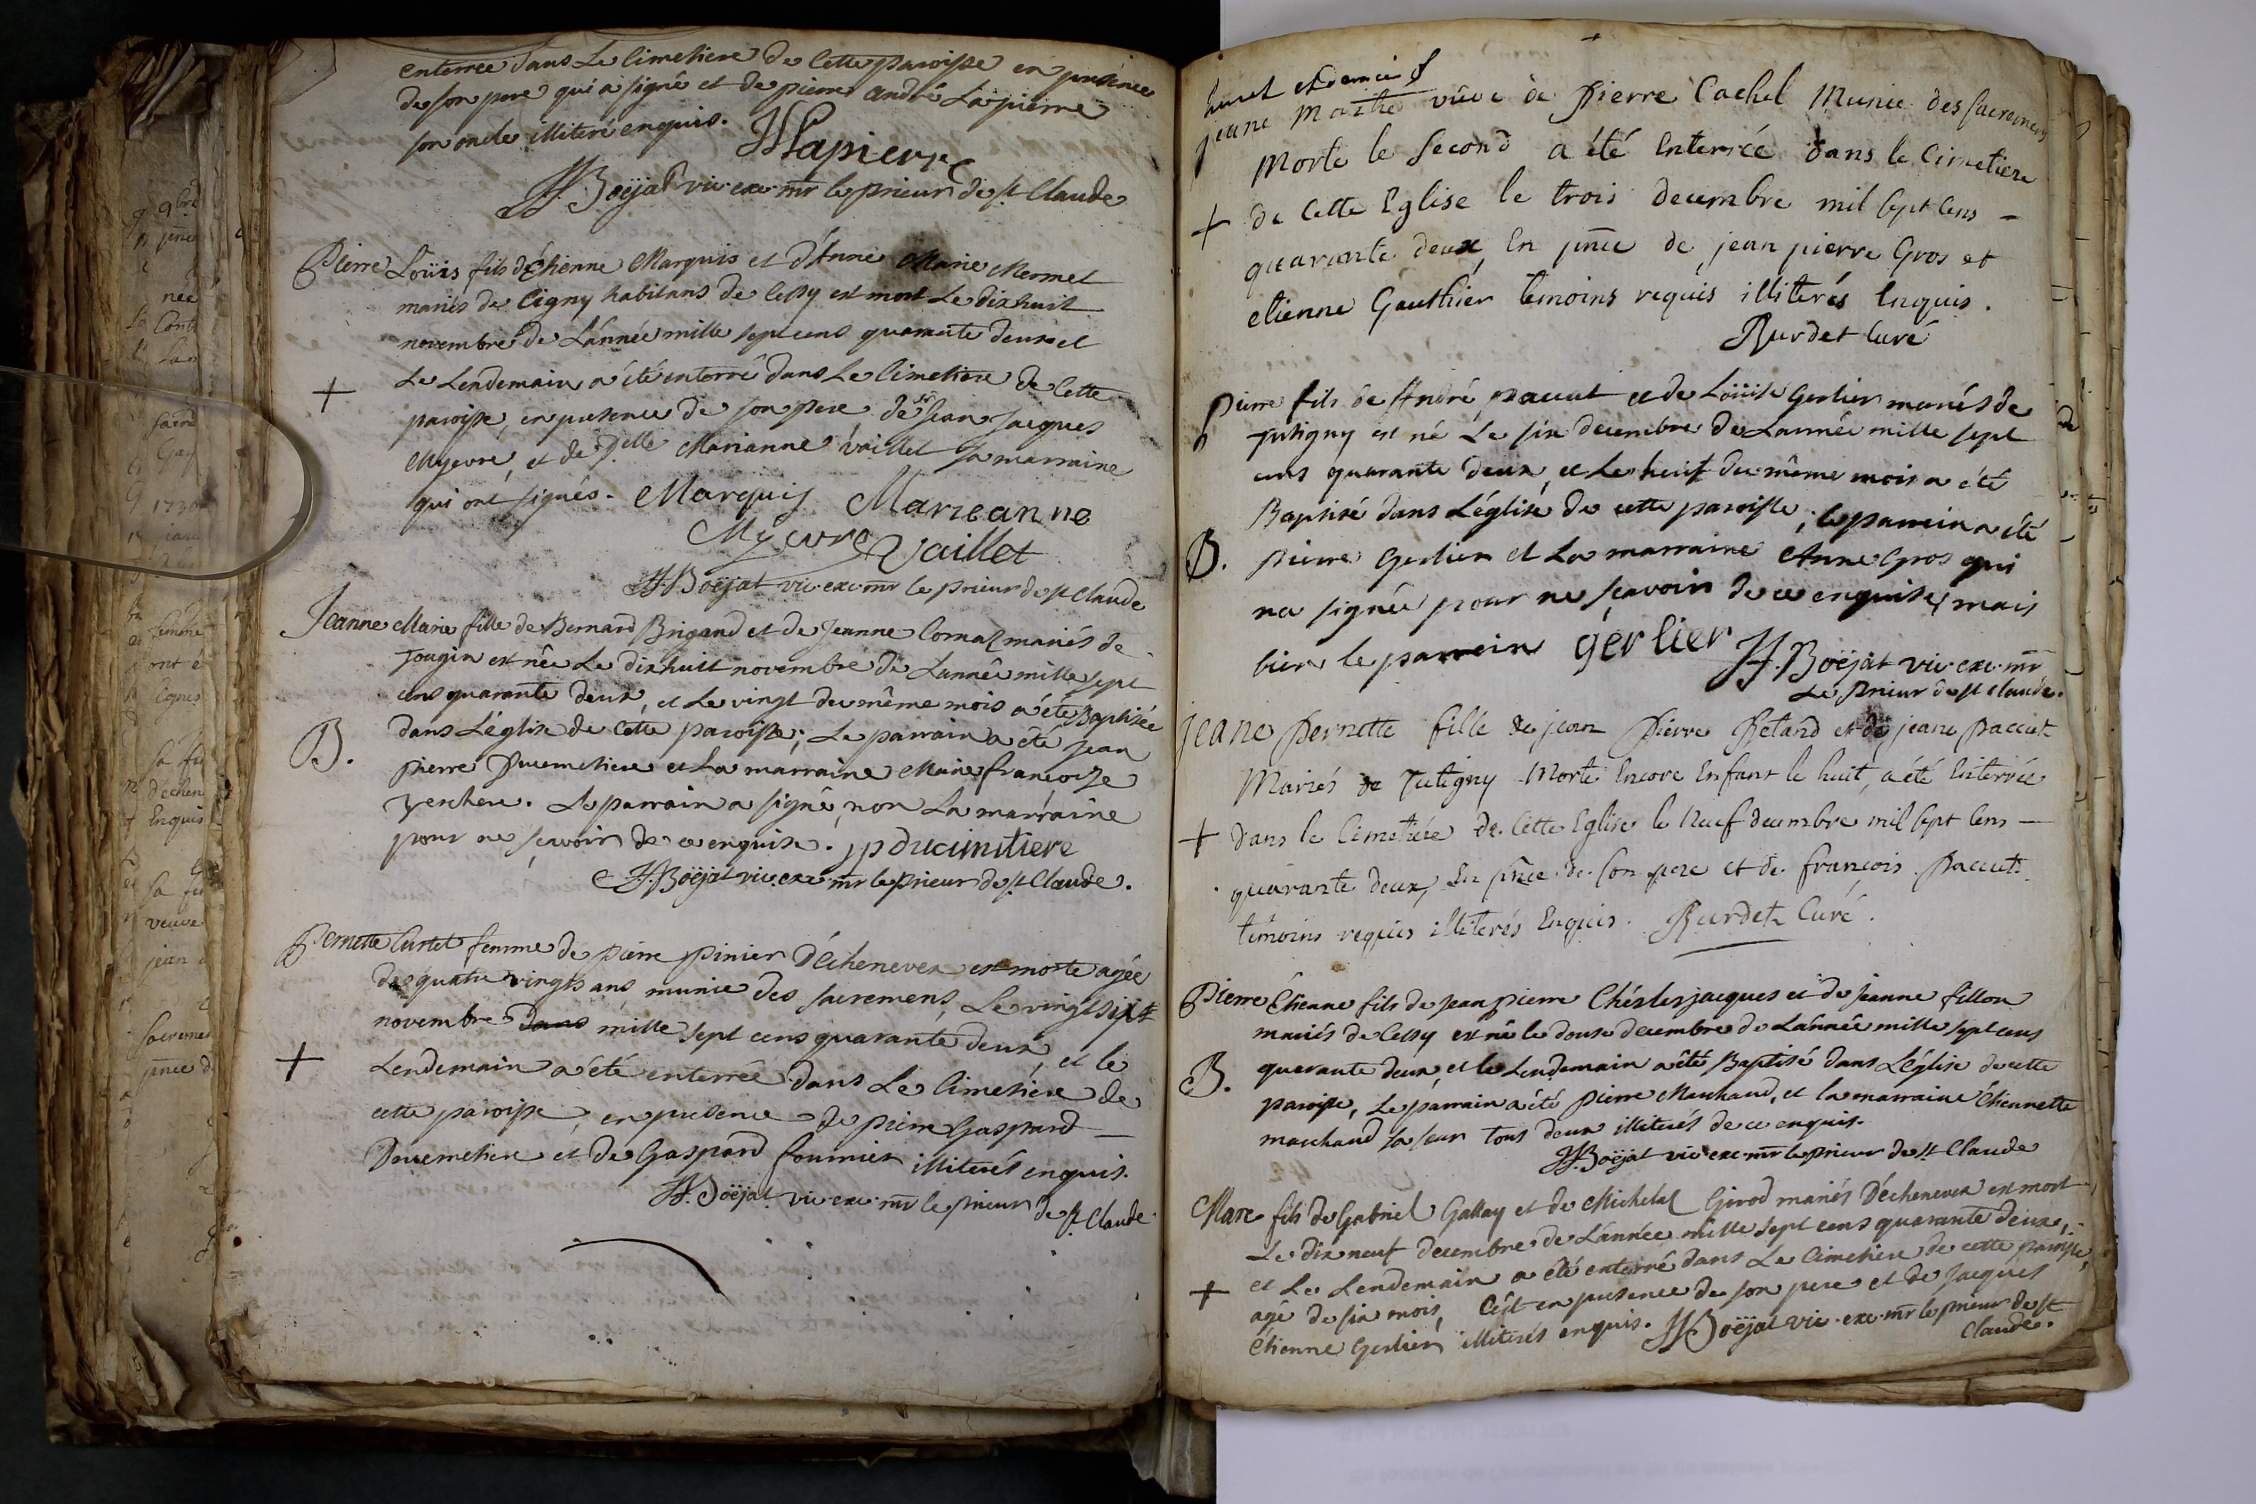 enterrée dans Le Cimetiere de Cette paroisse en presence
de son pere qui a signé et de pierre andré Lapierre
son oncle illiteré enquis. Lapierre
Boëjat vic. exe. mr le prieur de st Claude
Pierre Loüis fils d'Etienne Marquis et d'Anne Marie Mermet
mariés de Cigny habitans de Cessy est mort Le dixhuit
novembre de L'année mille sept cens quarante deux et
Le Lendemain a été enterré dans Le Cimetiere de Cette
+
paroisse, en presence de son pere de sr Jean Jacques
Myevre, et de Delle Marianne Vaillet sa marraine
qui ont signés. Marquis Marieanne
Myevre Vaillet
Boëjat vic. exe. mr le prieur de st Claude
Jeanne Marie fille de Bernard Brigand et de Jeanne Comaz mariés de
Tougin est née Le dixhuit novembre de L'année mille sept
cens quarante deux, et Le vingt du même mois a été Baptisée
dans L'église de Cette paroisse; Le parrain a été Jean
B.
pierre Ducimetiere et La marraine Marie françoise
verchere. Le parrain a signé, non La marraine
pour ne sçavoir de ce enquise. jp ducimitiere
Boëjat vic. exe. mr le prieur de st Claude.
Pernette Curtet femme de pierre pinier D'échenevex est morte agée
de quatre vingts ans munie des sacremens, Le vingt sixt
novembre dans mille sept cens quarante deux, et le
+
Lendemain a été enterrée dans Le Cimetiere de
cette paroisse, en presence de pierre Gaspard
Ducimetiere et de Gaspard fournier illiterés enquis.
Boëjat vic. exe. mr le prieur de st Claude.
jeane vüve de Pierre Cachel Munie des sacremens
Morte le second a été Enterrée dans le Cimetiere
+ de Cette Eglise le trois decembre mil sept Cens
quarante deux, En pnce de jean pierre Gros et
etienne Gauthier temoins requis illiterés Enquis.
Burdet Curé
Pierre fils de André paccut et de Loüise Gerlier mariés de
Tutigny est né Le six decembre de L'année mille sept
cens quarante deux, et Le huit du même mois a été
Baptisé dans L'église de cette paroisse; le parrein a été
B. pierre Gerlier et La marraine Anne Gros qui
na signée pour ne sçavoir de ce enquise, mais
bien le parrein gerlier Boëjat vic. exe. mr
Le prieur de st Claude.
jeane Pernette fille de jean Pierre Petard et de jeane Paccut
Mariés de Tutigny Morte Encore Enfant le huit, a été Enterrée
+ Dans le Cimetiére de Cette Eglise le Neuf decembre mil sept Cens
quarante deux, En pnce de son pere et de françois Paccut
témoins requis illiterés Enquis. Burdet Curé.
Pierre Etienne fils de Jean pierre Chésterjacques et de Jeanne fillon
mariés de Cessy est né le douze decembre de L'année mille sept cens
quarante deux, et le Lendemain a été Baptisé dans L'église de cette
B.
paroisse, Le parrain a été pierre Marchand, et la marraine Etiennette
marchand sa sœur tous deux illiterés de ce enquis.
Boëjat vic. exe. mr le prieur de st Claude
Marc fils de Gabriel Gallay et de Michelaz Girod mariés D'échenevex est mort
Le dix neuf decembre de L'année mille sept cens quarante deux,
et Le Lendemain a été enterré dans Le Cimetiere de cette paroisse,
+
agé de six mois, C'est en presence de son pere et de Jacques
Etienne Gerlier illiterés enquis. Boëjat vic. exe. mr le prieur de st
Claude.